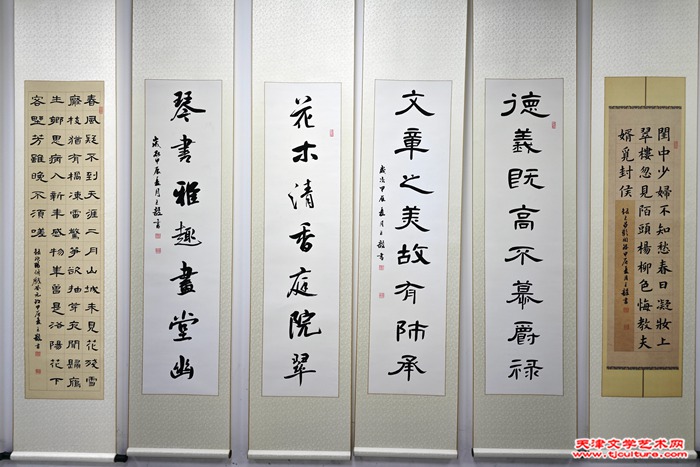 閨中少婦不知愁春日凝妝上
翠樓忽見陌頭楊柳色悔教夫
婿覓封侯
德義既高不慕爵禄
文章之美故有師承
歲次甲辰夏月王毅書
花木清香庭院翠
琴書雅趣畫堂幽
甲辰夏月王毅書
春風疑不到天涯二月山城未見花殘雪
壓枝猶有橘凍雷驚筍欲抽芽夜聞歸雁
生鄉思病入新年感物華曾是洛陽花下
客野芳雖晚不須嗟
天津文学艺术网
www.tjculture.com